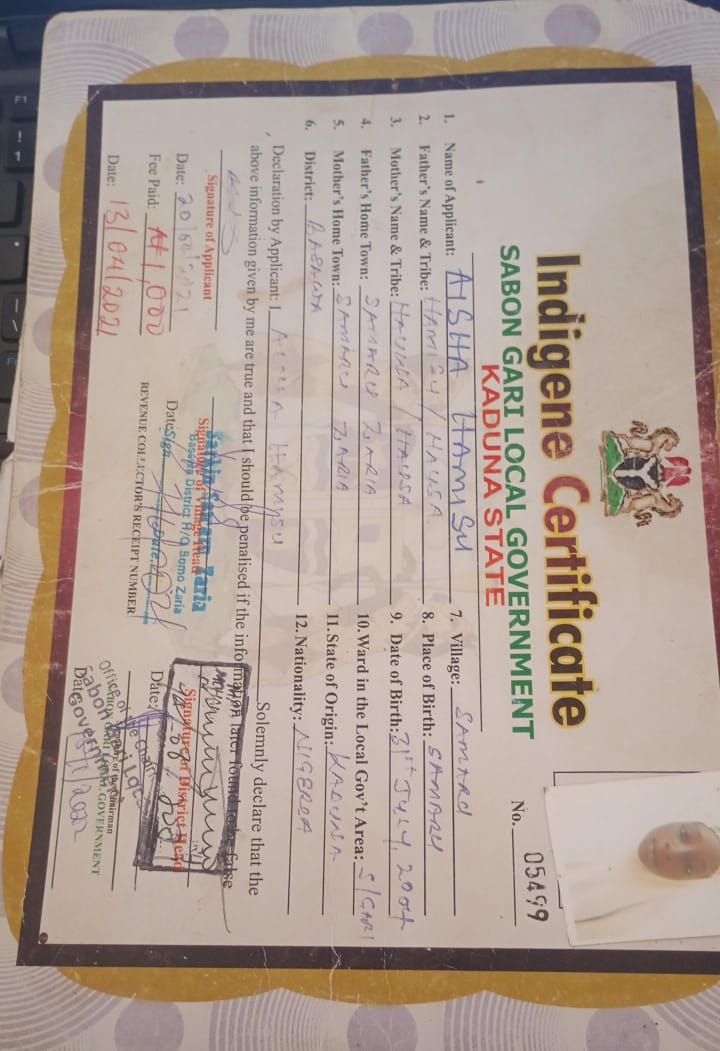 Indigene Certificate
SABON GARI LOCAL GOVERNMENT
KADUNA STATE
No. 05499
1. Name of Applicant: AISHA HAMISU
2. Father's Name & Tribe: HAMISU / HAUSA
3. Mother's Name & Tribe: HAUWA / HAUSA
4. Father's Home Town: SAMARU ZARIA
5. Mother's Home Town: SAMARU ZARIA
6. District: BASAWA
7. Village: SAMARU
8. Place of Birth: SAMARU
9. Date of Birth: 31st JULY, 2004
10. Ward in the Local Gov't Area: S/GARI
11. State of Origin: KADUNA
12. Nationality: NIGERIA
Declaration by Applicant: I Solemnly declare that the
above information given by me are true and that I should be penalised if the information later found to be false
Signature of Applicant
Date:
Fee Paid: ₦1,000
Date: 13/04/2021
Signature of Village Head
Sarkin Samaru Zaria
Basawa District H/Q Bomo Zaria
Date:
Sign Date
REVENUE COLLECTOR'S RECEIPT NUMBER
Signature District Head
Date:
Office of the Chairman
Sabon Gari Local Government
Signature of the Chairman
SABON GARI LOCAL GOVERNMENT
Date: